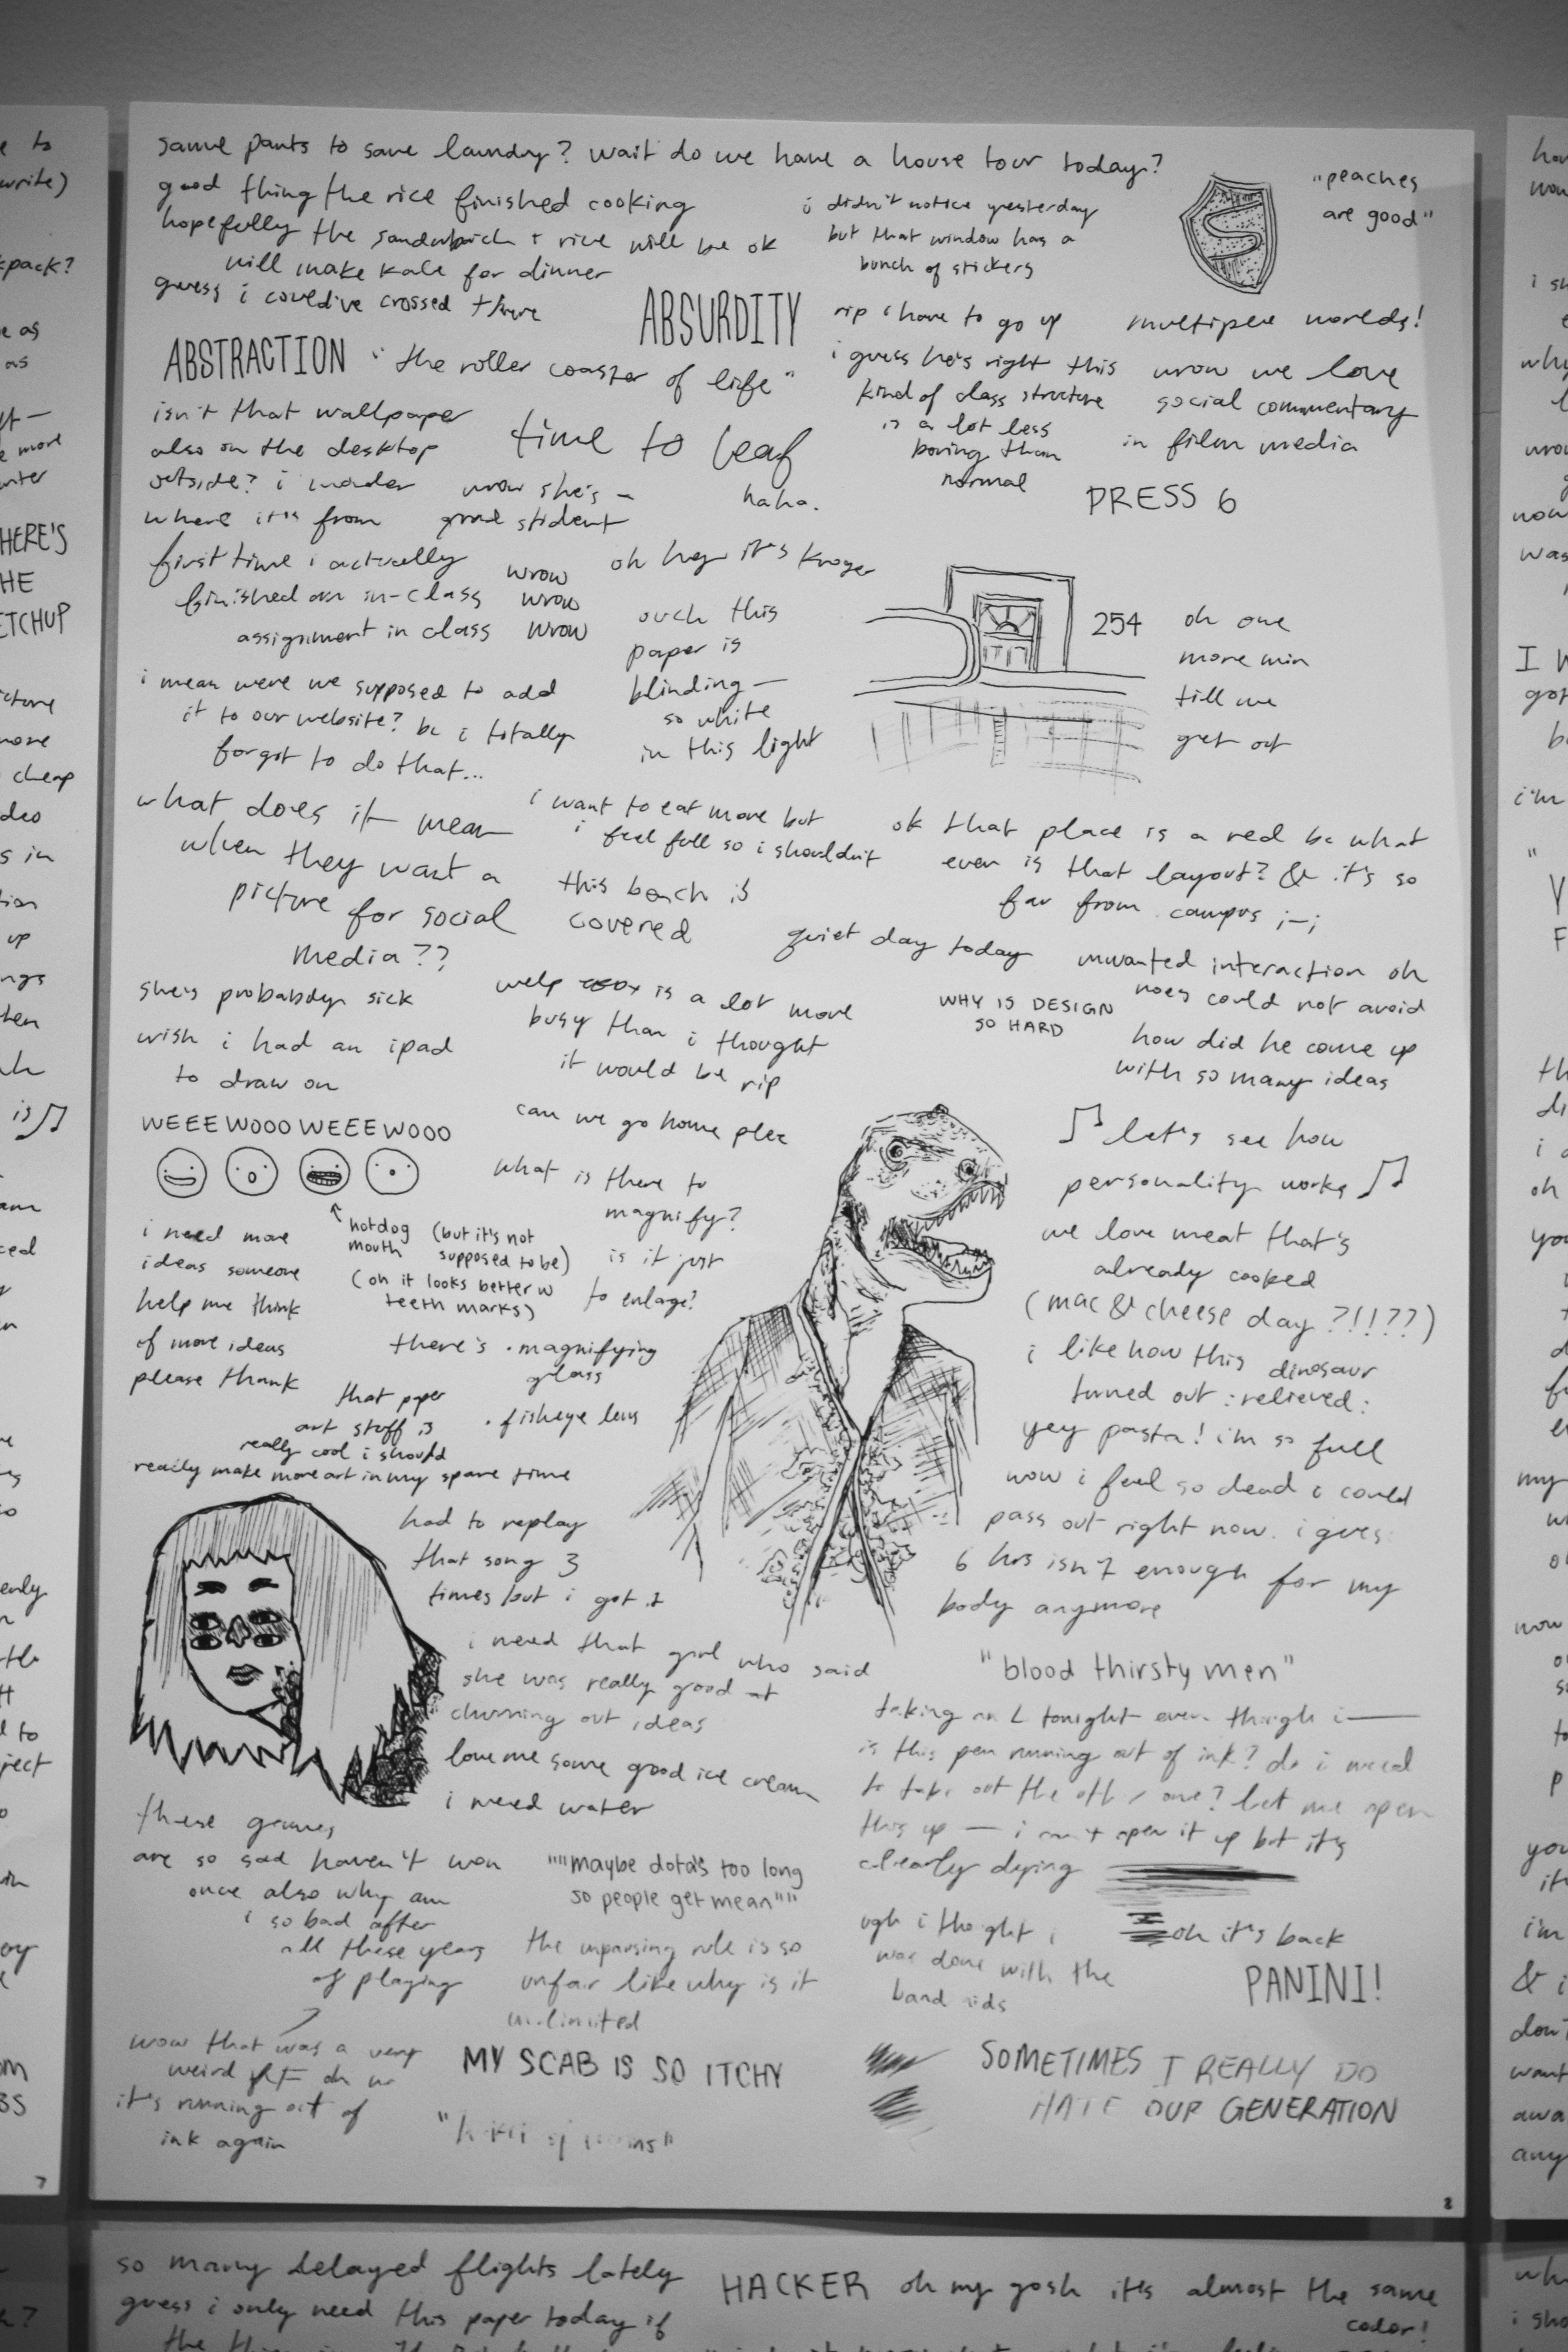 same pants to save laundry? wait do we have a house tour today?
good thing the rice finished cooking
hopefully the sandwich + rice will be ok
will make kale for dinner
guess i could've crossed there
i didn't notice yesterday
but that window has a
bunch of stickers
S
"peaches
are good"
ABSURDITY
ABSTRACTION
"the roller coaster of life"
rip i have to go up
multiple worlds!
i guess he's right this
kind of class structure
is a lot less
boring than
normal
wrow we love
social commentary
in film media
isn't that wallpaper
also on the desktop
outside? i wonder
where it's from
time to leaf
haha.
wrow she's a
good student
PRESS 6
first time i actually
finished an in-class
assignment in class
wrow
wrow
wrow
oh hey it's kroger
ouch this
paper is
blinding—
so white
in this light
254
oh one
more min
till we
get out
i mean were we supposed to add
it to our website? bc i totally
forgot to do that...
what does it mean
when they want a
picture for social
media??
i want to eat more but
i feel full so i shouldn't
this bench is
covered
ok that place is a red bc what
even is that layout? & it's so
far from campus ;-;
quiet day today
unwanted interaction oh
noes could not avoid
she's probably sick
wish i had an ipad
to draw on
welp is a lot more
busy than i thought
it would be rip
WHY IS DESIGN
SO HARD
how did he come up
with so many ideas
WEEEWOOOWEEEWOOO
can we go home plez
what is there to
magnify?
is it just
to enlarge?
hotdog
mouth
(but it's not
supposed to be)
(oh it looks better w
teeth marks)
i need more
ideas someone
help me think
of more ideas
please thank
there's
· magnifying
glass
· fisheye lens
that paper
art stuff is
really cool i should
really make more art in my spare time
♫ let's see how
personality works ♫
we love meat that's
already cooked
(mac & cheese day ?!!??)
i like how this dinosaur
turned out :relieved:
yey pasta! i'm so full
now i feel so dead i could
pass out right now. i guess
6 hrs isn't enough for my
body anymore
had to replay
that song 3
times but i got it
i need that girl who said
she was really good at
churning out ideas
love me some good ice cream
i need water
"blood thirsty men"
taking an L tonight even though i—
is this pen running out of ink? do i need
to take out the other one? let me open
this up — i can't open it up but it's
clearly dying
these games
are so sad haven't won
once also why am
i so bad after
all these years
of playing
""maybe dota's too long
so people get mean""
the unpausing rule is so
unfair like why is it
unlimited
ugh i thought i
was done with the
band aids
oh it's back
PANINI!
wow that was a very
weird
it's running out of
ink again
MY SCAB IS SO ITCHY
SOMETIMES I REALLY DO
HATE OUR GENERATION
8
7
so many delayed flights lately
guess i only need this paper today if
HACKER oh my gosh it's almost the same
color!
HERE'S
HE
ETCHUP